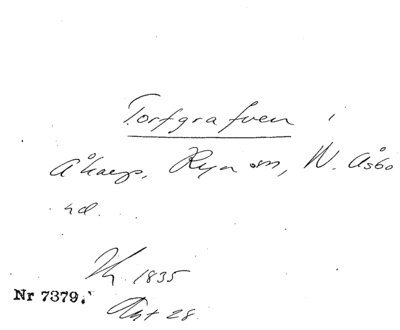 Torfgrafven i
Åkarp, sn, N. Åsbo
hd.
1835
Nr 7379.
28.